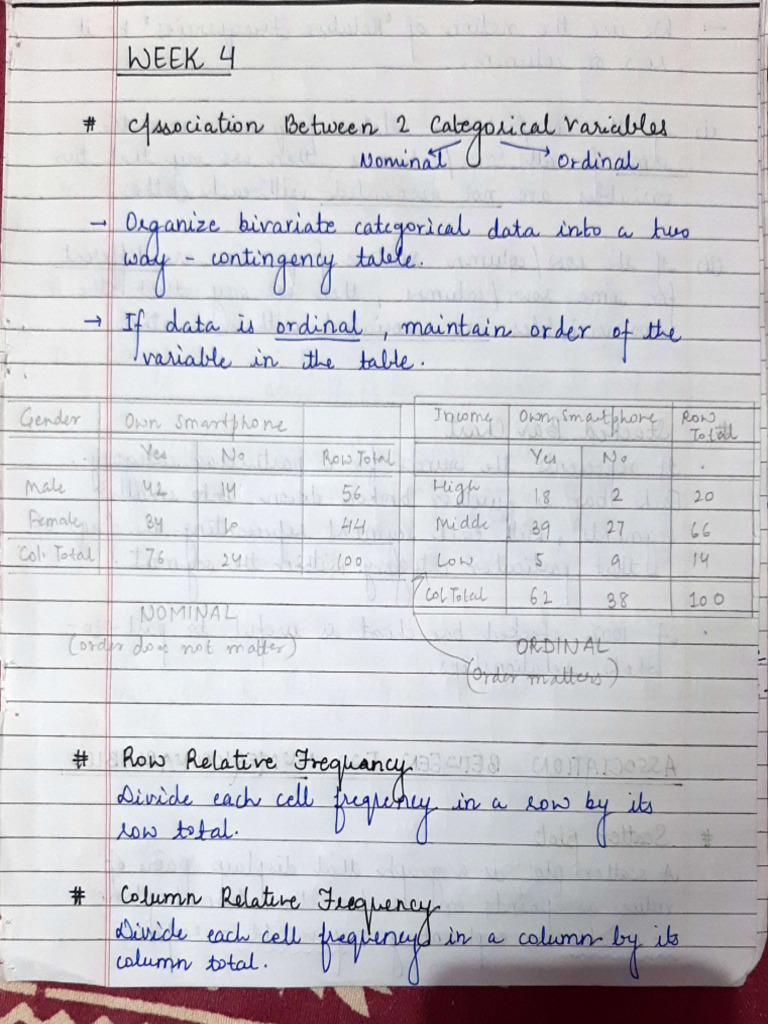 WEEK 4
# Association Between 2 Categorical Variables
Nominal Ordinal
→ Organize bivariate categorical data into a two
way - contingency table.
→ If data is ordinal, maintain order of the
variable in the table.
Gender Own Smartphone
Yes No Row Total
Male 42 14 56
Female 34 44
Col. Total 76 24 100
NOMINAL
(order does not matter)
Income Own Smartphone Row Total
Yes No
High 18 2 20
Middle 39 27 66
Low 5 9 14
Col Total 62 38 100
ORDINAL
(order matters)
# Row Relative Frequancy
Divide each cell frequency in a row by its
row total.
# Column Relative Frequency
Divide each cell frequency in a column by its
column total.